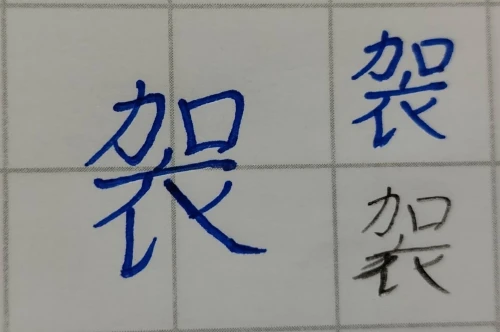 袈
袈
袈